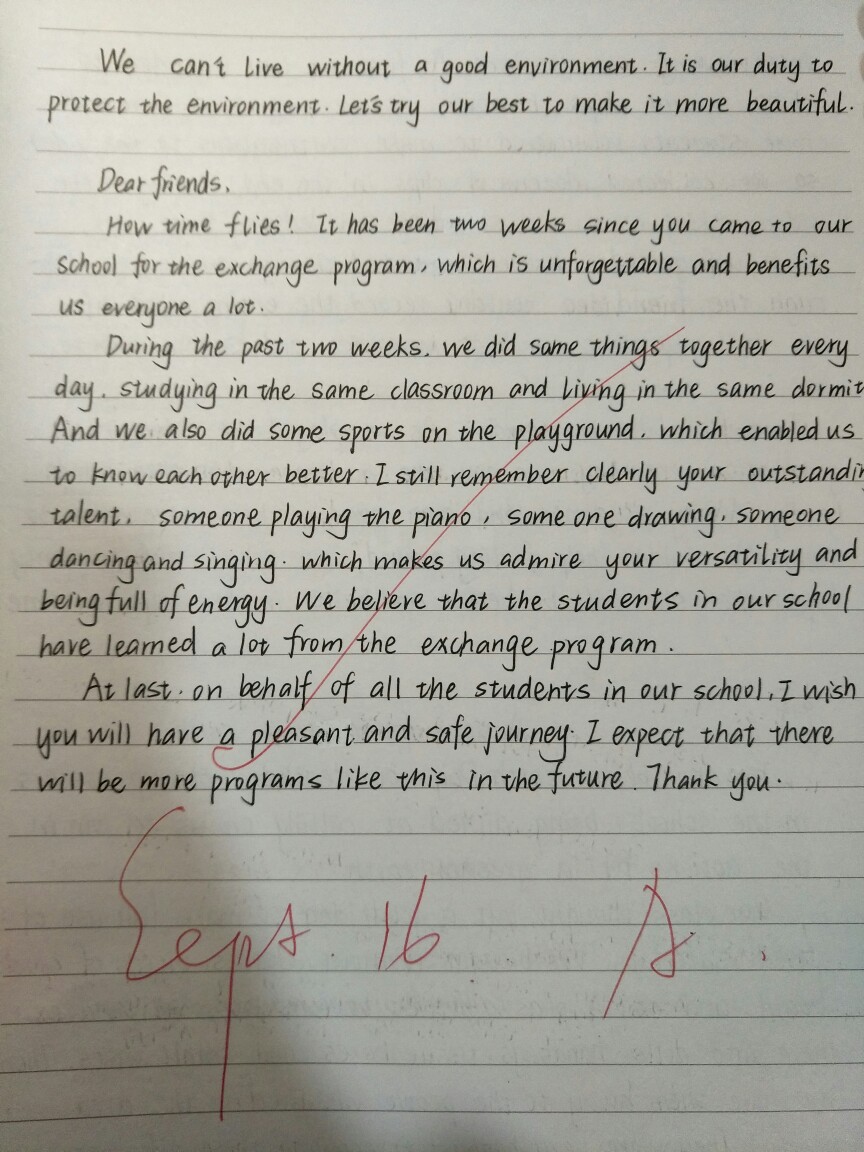 We can't live without a good environment. It is our duty to
protect the environment. Let's try our best to make it more beautiful.
Dear friends,
How time flies! It has been two weeks since you came to our
school for the exchange program, which is unforgettable and benefits
us everyone a lot.
During the past two weeks, we did same things together every
day, studying in the same classroom and living in the same dormit
And we also did some sports on the playground, which enabled us
to know each other better. I still remember clearly your outstandin
talent, someone playing the piano, some one drawing, someone
dancing and singing, which makes us admire your versatility and
being full of energy. We believe that the students in our school
have learned a lot from the exchange program.
At last, on behalf of all the students in our school, I wish
you will have a pleasant and safe journey. I expect that there
will be more programs like this in the future. Thank you.
Sept. 16 A.